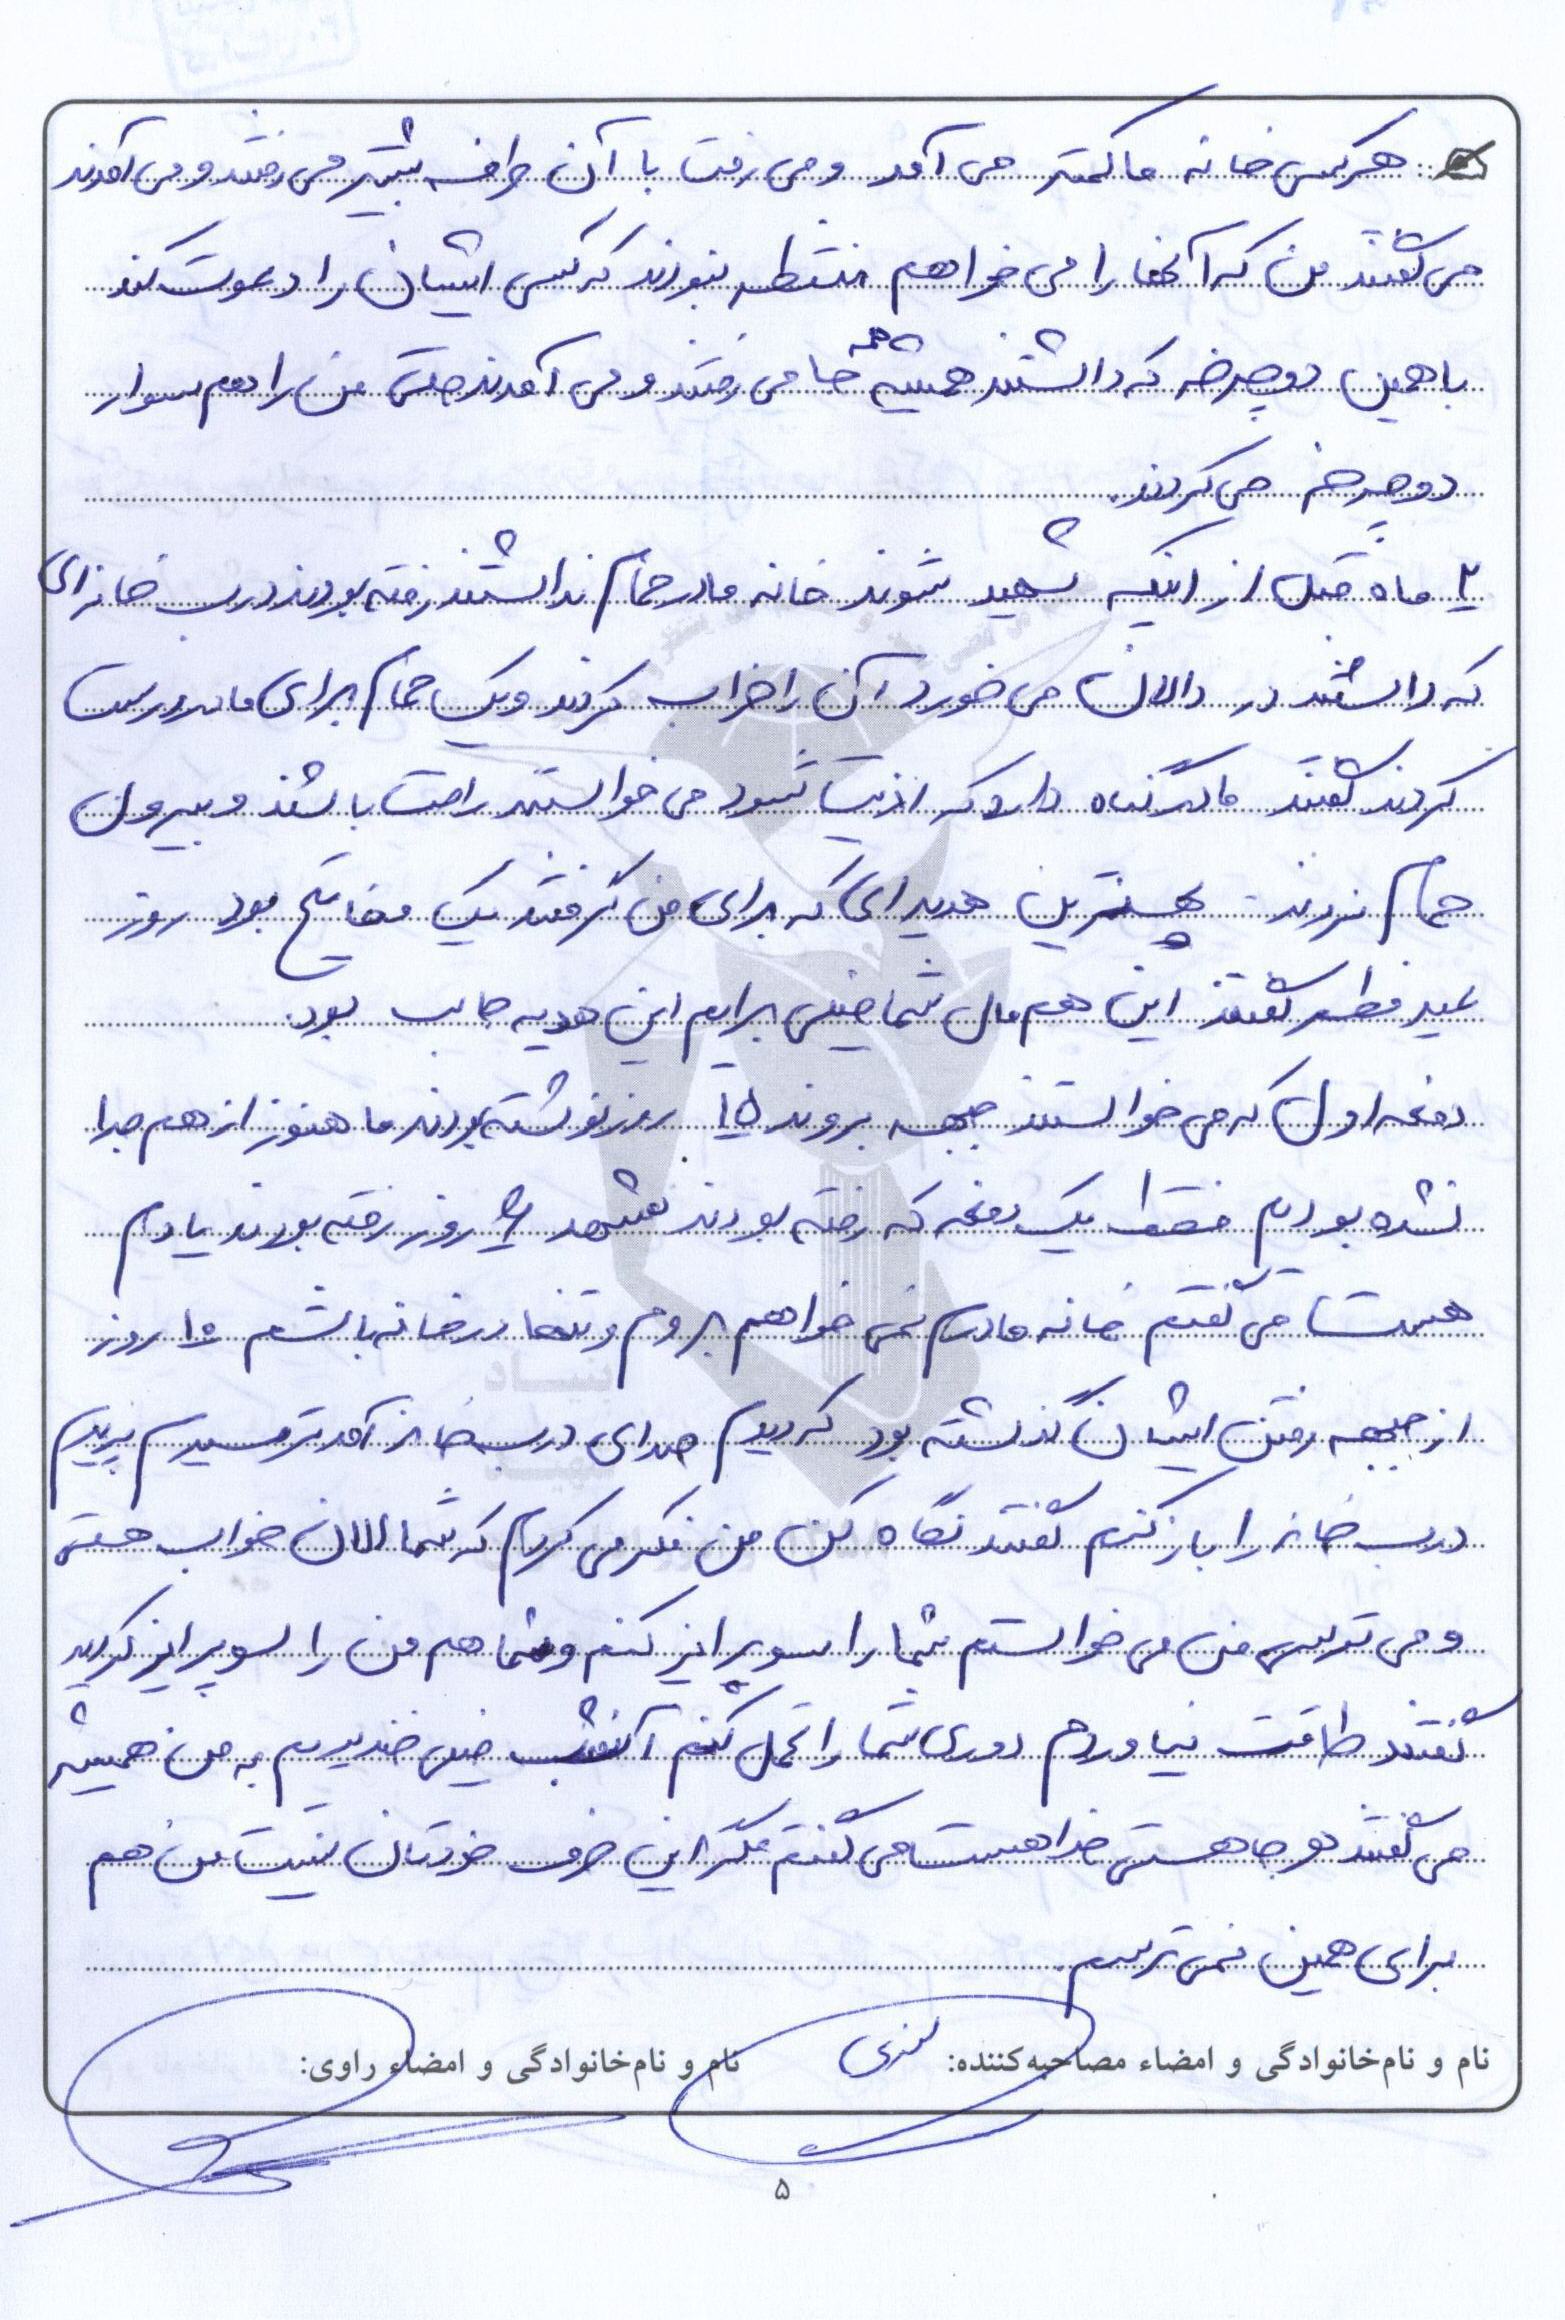 هر کس خانه ما کمتر می آمد و می رفت با آن طرف بیشتر می رفتند و می آمدند
می گفتند من که آنها را می خواهم منتظر نبودند که کسی ایشان را دعوت کند
با همین دوچرخه که داشتند همیشه همه جا می رفتند و می آمدند حتی من را هم سوار
دوچرخه می کردند.
۲ ماه قبل از اینکه شهید شوند خانه مادر حمام نداشتند رفته بودند درب خانه ای
که داشتند در دالان می خورد آن را خراب کردند و یک حمام برای مادر درست
کردند گفتند مادر گناه دارد که اذیت شود می خواستند راحت باشند و بیرون
حمام نروند. بهترین هدیه ای که برای من گرفتند یک مفاتیح بود روز
عید فطر گفتند این هم مال شما خیلی برایم این هدیه جالب بود.
دفعه اول که می خواستند جبهه بروند ۱۵ روز نوشته بودند ما هنوز از هم جدا
نشده بودیم فقط یک دفعه که رفته بودند روز رفته بودند یادم
هست می گفتم خانه مادرم نمی خواهم بروم و تنها در خانه باشم ۱۰ روز
از جبهه رفتن ایشان گذشته بود که دیدم صدای درب خانه آمد ترسیدم پریدم
درب خانه را باز کنم گفتند نگاه کن من فکر می کردم که شما الان خواب هستی
و می ترسی من می خواستم شما را سوپرایز کنم و شما هم من را سوپرایز کردید
گفتند طاقت نیاوردم دوری شما را تحمل کنم آنشب خیلی خندیدیم به من همیشه
می گفتند هر جا هستی خدا هست می گفتم مگر این حرف خودتان نیست من هم
برای همین نمی ترسم.
نام و نام خانوادگی و امضاء مصاحبه کننده: نام و نام خانوادگی و امضاء راوی:
۵